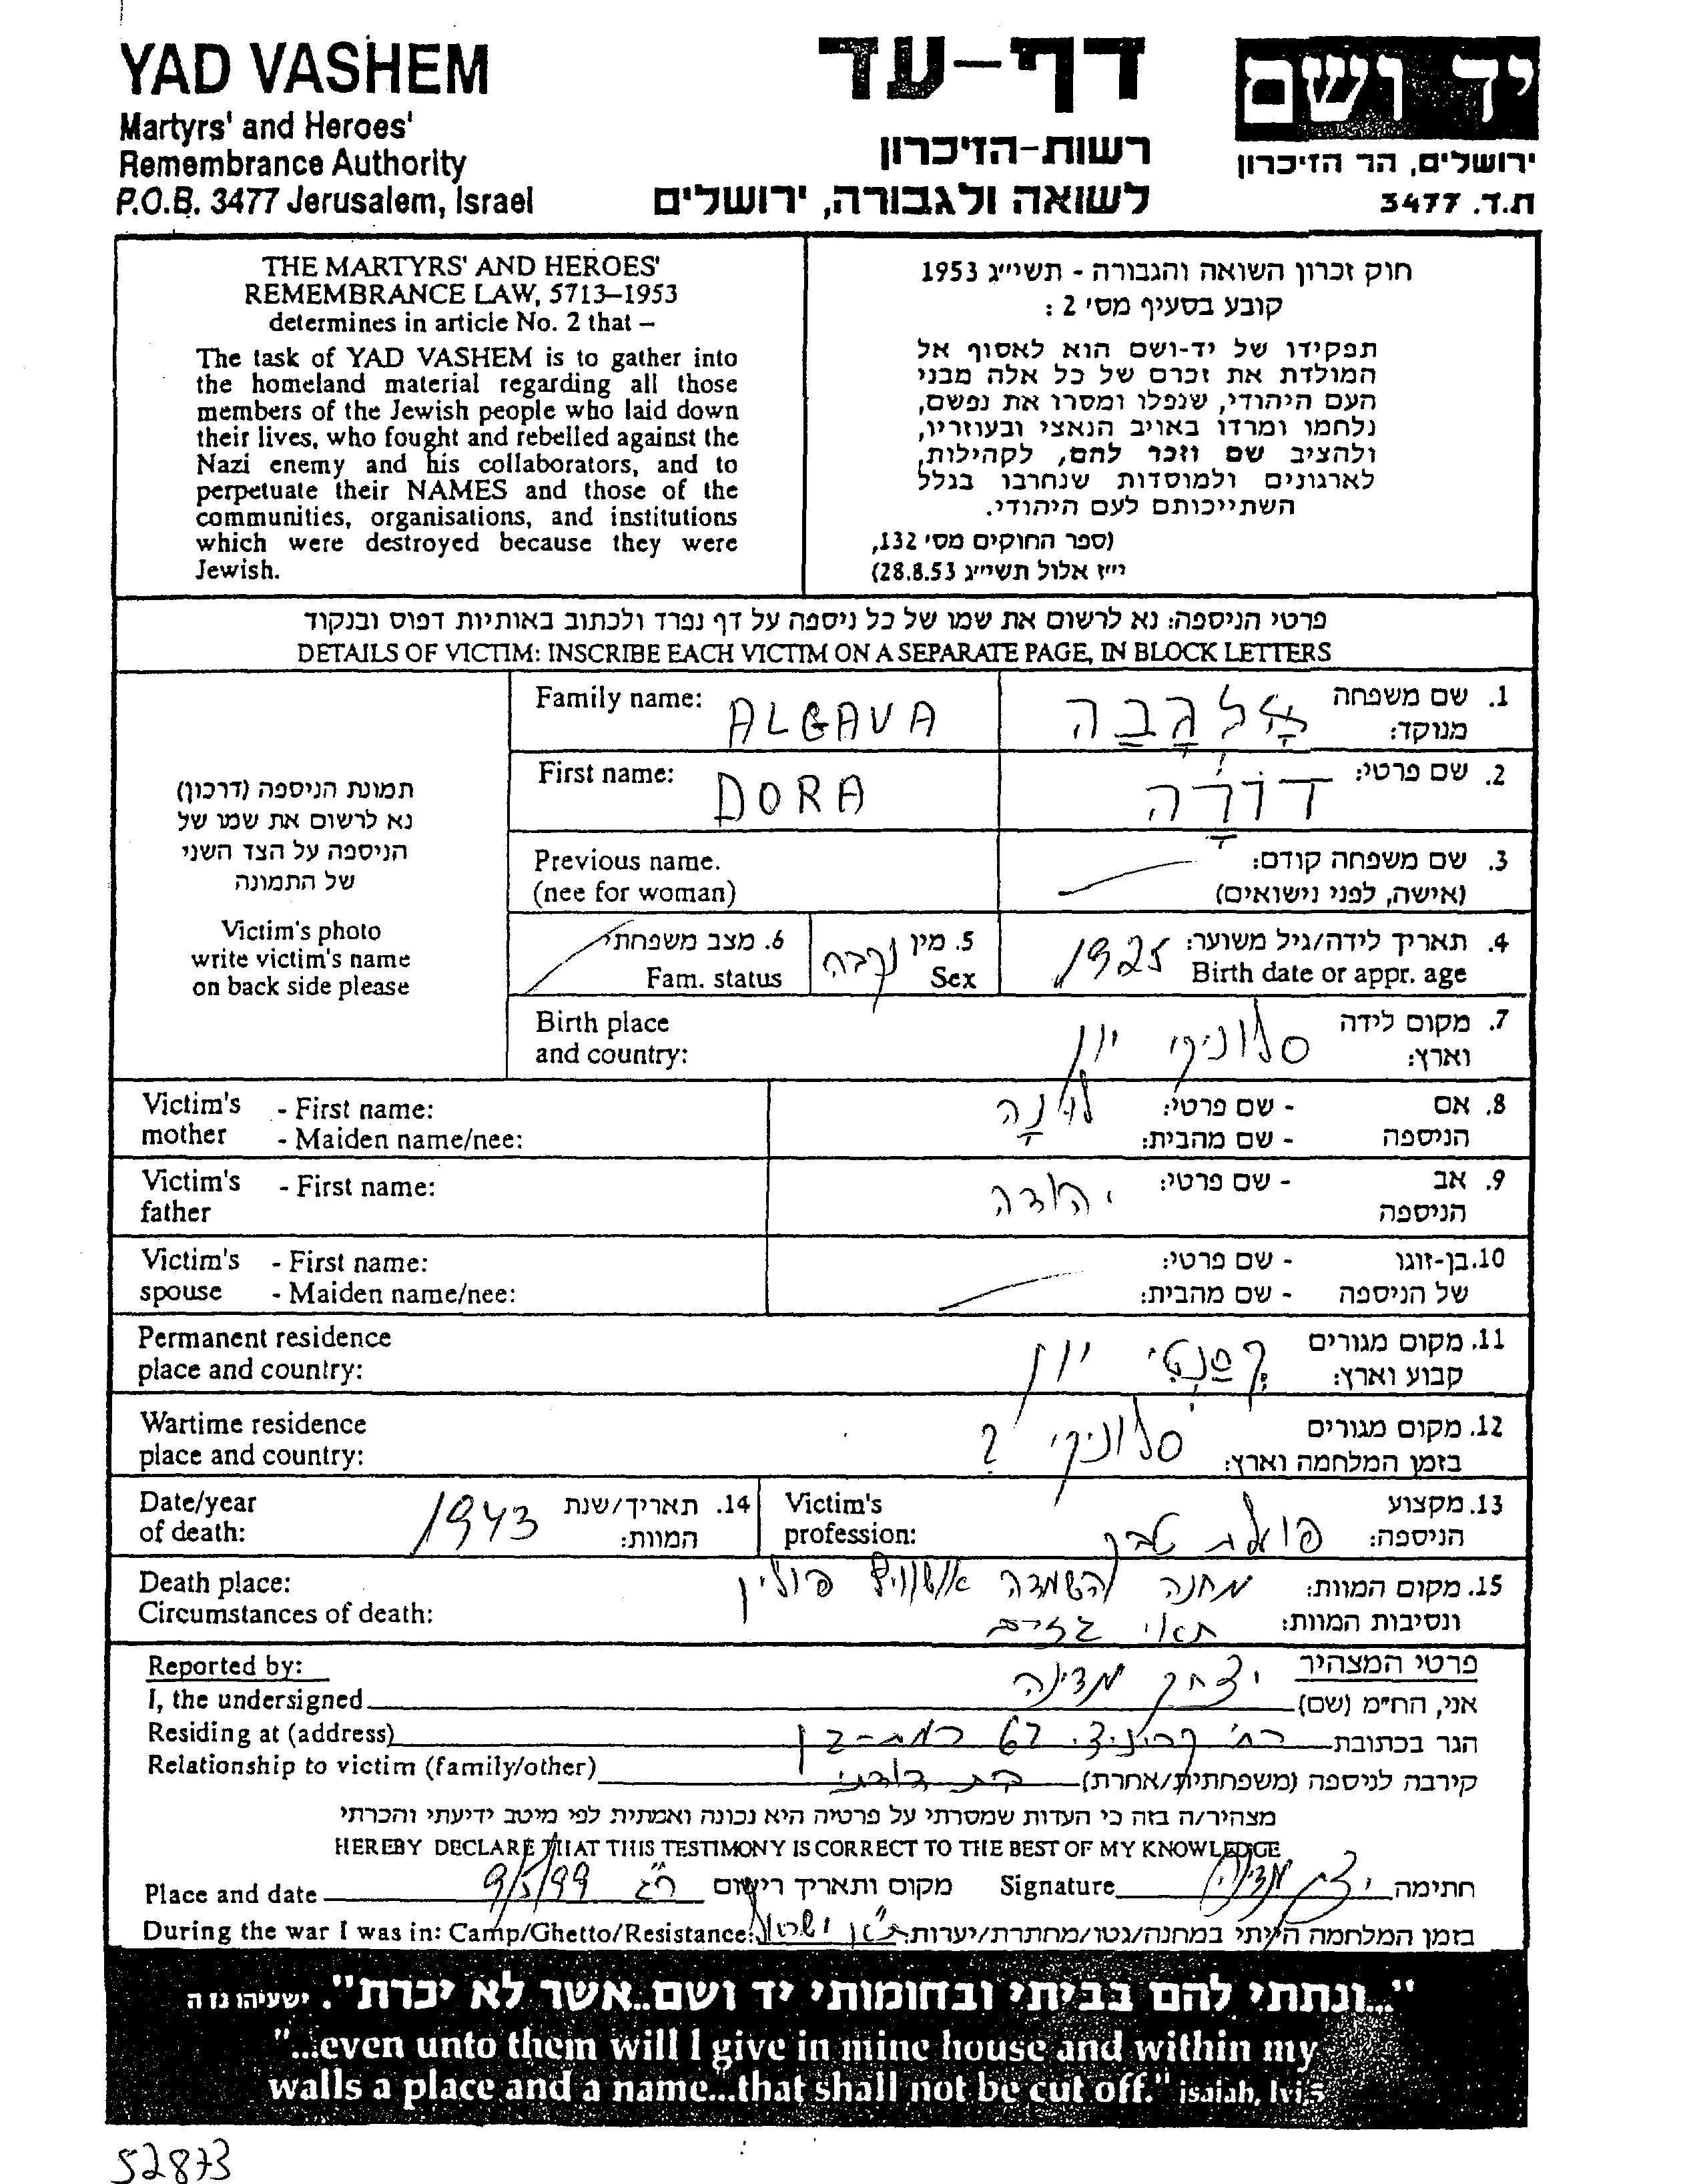 YAD VASHEM
Martyrs' and Heroes'
Remembrance Authority
P.O.B. 3477 Jerusalem, Israel
דף-עד
רשות-הזיכרון
לשואה ולגבורה, ירושלים
יד ושם
ירושלים, הר הזיכרון
ת.ד. 3477
THE MARTYRS' AND HEROES'
REMEMBRANCE LAW, 5713–1953
determines in article No. 2 that –
The task of YAD VASHEM is to gather into
the homeland material regarding all those
members of the Jewish people who laid down
their lives, who fought and rebelled against the
Nazi enemy and his collaborators, and to
perpetuate their NAMES and those of the
communities, organisations, and institutions
which were destroyed because they were
Jewish.
חוק זכרון השואה והגבורה - תשי״ג 1953
קובע בסעיף מס׳ 2 :
תפקידו של יד-ושם הוא לאסוף אל
המולדת את זכרם של כל אלה מבני
העם היהודי, שנפלו ומסרו את נפשם,
נלחמו ומרדו באויב הנאצי ובעוזריו,
ולהציב שם וזכר להם, לקהילות,
לארגונים ולמוסדות שנחרבו בגלל
השתייכותם לעם היהודי.
(ספר החוקים מס׳ 132,
י״ז אלול תשי״ג 28.8.53)
פרטי הניספה: נא לרשום את שמו של כל ניספה על דף נפרד ולכתוב באותיות דפוס ובנקוד
DETAILS OF VICTIM: INSCRIBE EACH VICTIM ON A SEPARATE PAGE, IN BLOCK LETTERS
תמונת הניספה (דרכון)
נא לרשום את שמו של
הניספה על הצד השני
של התמונה
Victim's photo
write victim's name
on back side please
Family name: ALGAVA
1. שם משפחה מנוקד: אָלגָבַה
First name: DORA
2. שם פרטי: דוֹרָה
Previous name.
(nee for woman)
3. שם משפחה קודם:
(אישה, לפני נישואים)
4. תאריך לידה/גיל משוער: 1925
Birth date or appr. age
5. מין נקבה
Sex
6. מצב משפחתי
Fam. status
Birth place
and country:
7. מקום לידה וארץ: סלוניקי יוון
Victim's mother - First name:
- Maiden name/nee:
8. אם הניספה - שם פרטי:
- שם מהבית:
Victim's father - First name:
9. אב הניספה - שם פרטי: יהודה
Victim's spouse - First name:
- Maiden name/nee:
10. בן-זוגו של הניספה - שם פרטי:
- שם מהבית:
Permanent residence
place and country:
11. מקום מגורים קבוע וארץ: יוון
Wartime residence
place and country:
12. מקום מגורים בזמן המלחמה וארץ: סלוניקי ?
Date/year
of death:
14. תאריך/שנת המוות: 1943
Victim's
profession:
13. מקצוע הניספה: פועלת טבק
Death place:
Circumstances of death:
15. מקום המוות: מחנה השמדה אושוויץ פולין
ונסיבות המוות: תאי גזים
Reported by:
פרטי המצהיר
I, the undersigned
אני, הח״מ (שם) יצחק מדינה
Residing at (address)
הגר בכתובת רח׳ קריניצי 62 רמת-גן
Relationship to victim (family/other)
קירבה לניספה (משפחתית/אחרת) בת דודתי
מצהיר/ה בזה כי העדות שמסרתי על פרטיה היא נכונה ואמתית לפי מיטב ידיעתי והכרתי
HEREBY DECLARE THAT THIS TESTIMONY IS CORRECT TO THE BEST OF MY KNOWLEDGE
Place and date 9/5/99 ר״ג מקום ותאריך רישום
Signature יצחק מדינה חתימה
During the war I was in: Camp/Ghetto/Resistance:
בזמן המלחמה הייתי במחנה/גטו/מחתרת/יערות: ת״א ישראל
"...ונתתי להם בביתי ובחומותי יד ושם..אשר לא יכרת". ישעיהו נו ה
"...even unto them will I give in mine house and within my
walls a place and a name...that shall not be cut off." isaiah, lvi,5
52873